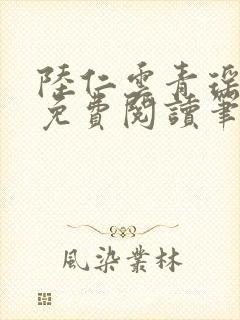 陸仁雲青瑶
免費閱讀筆
風染叢林